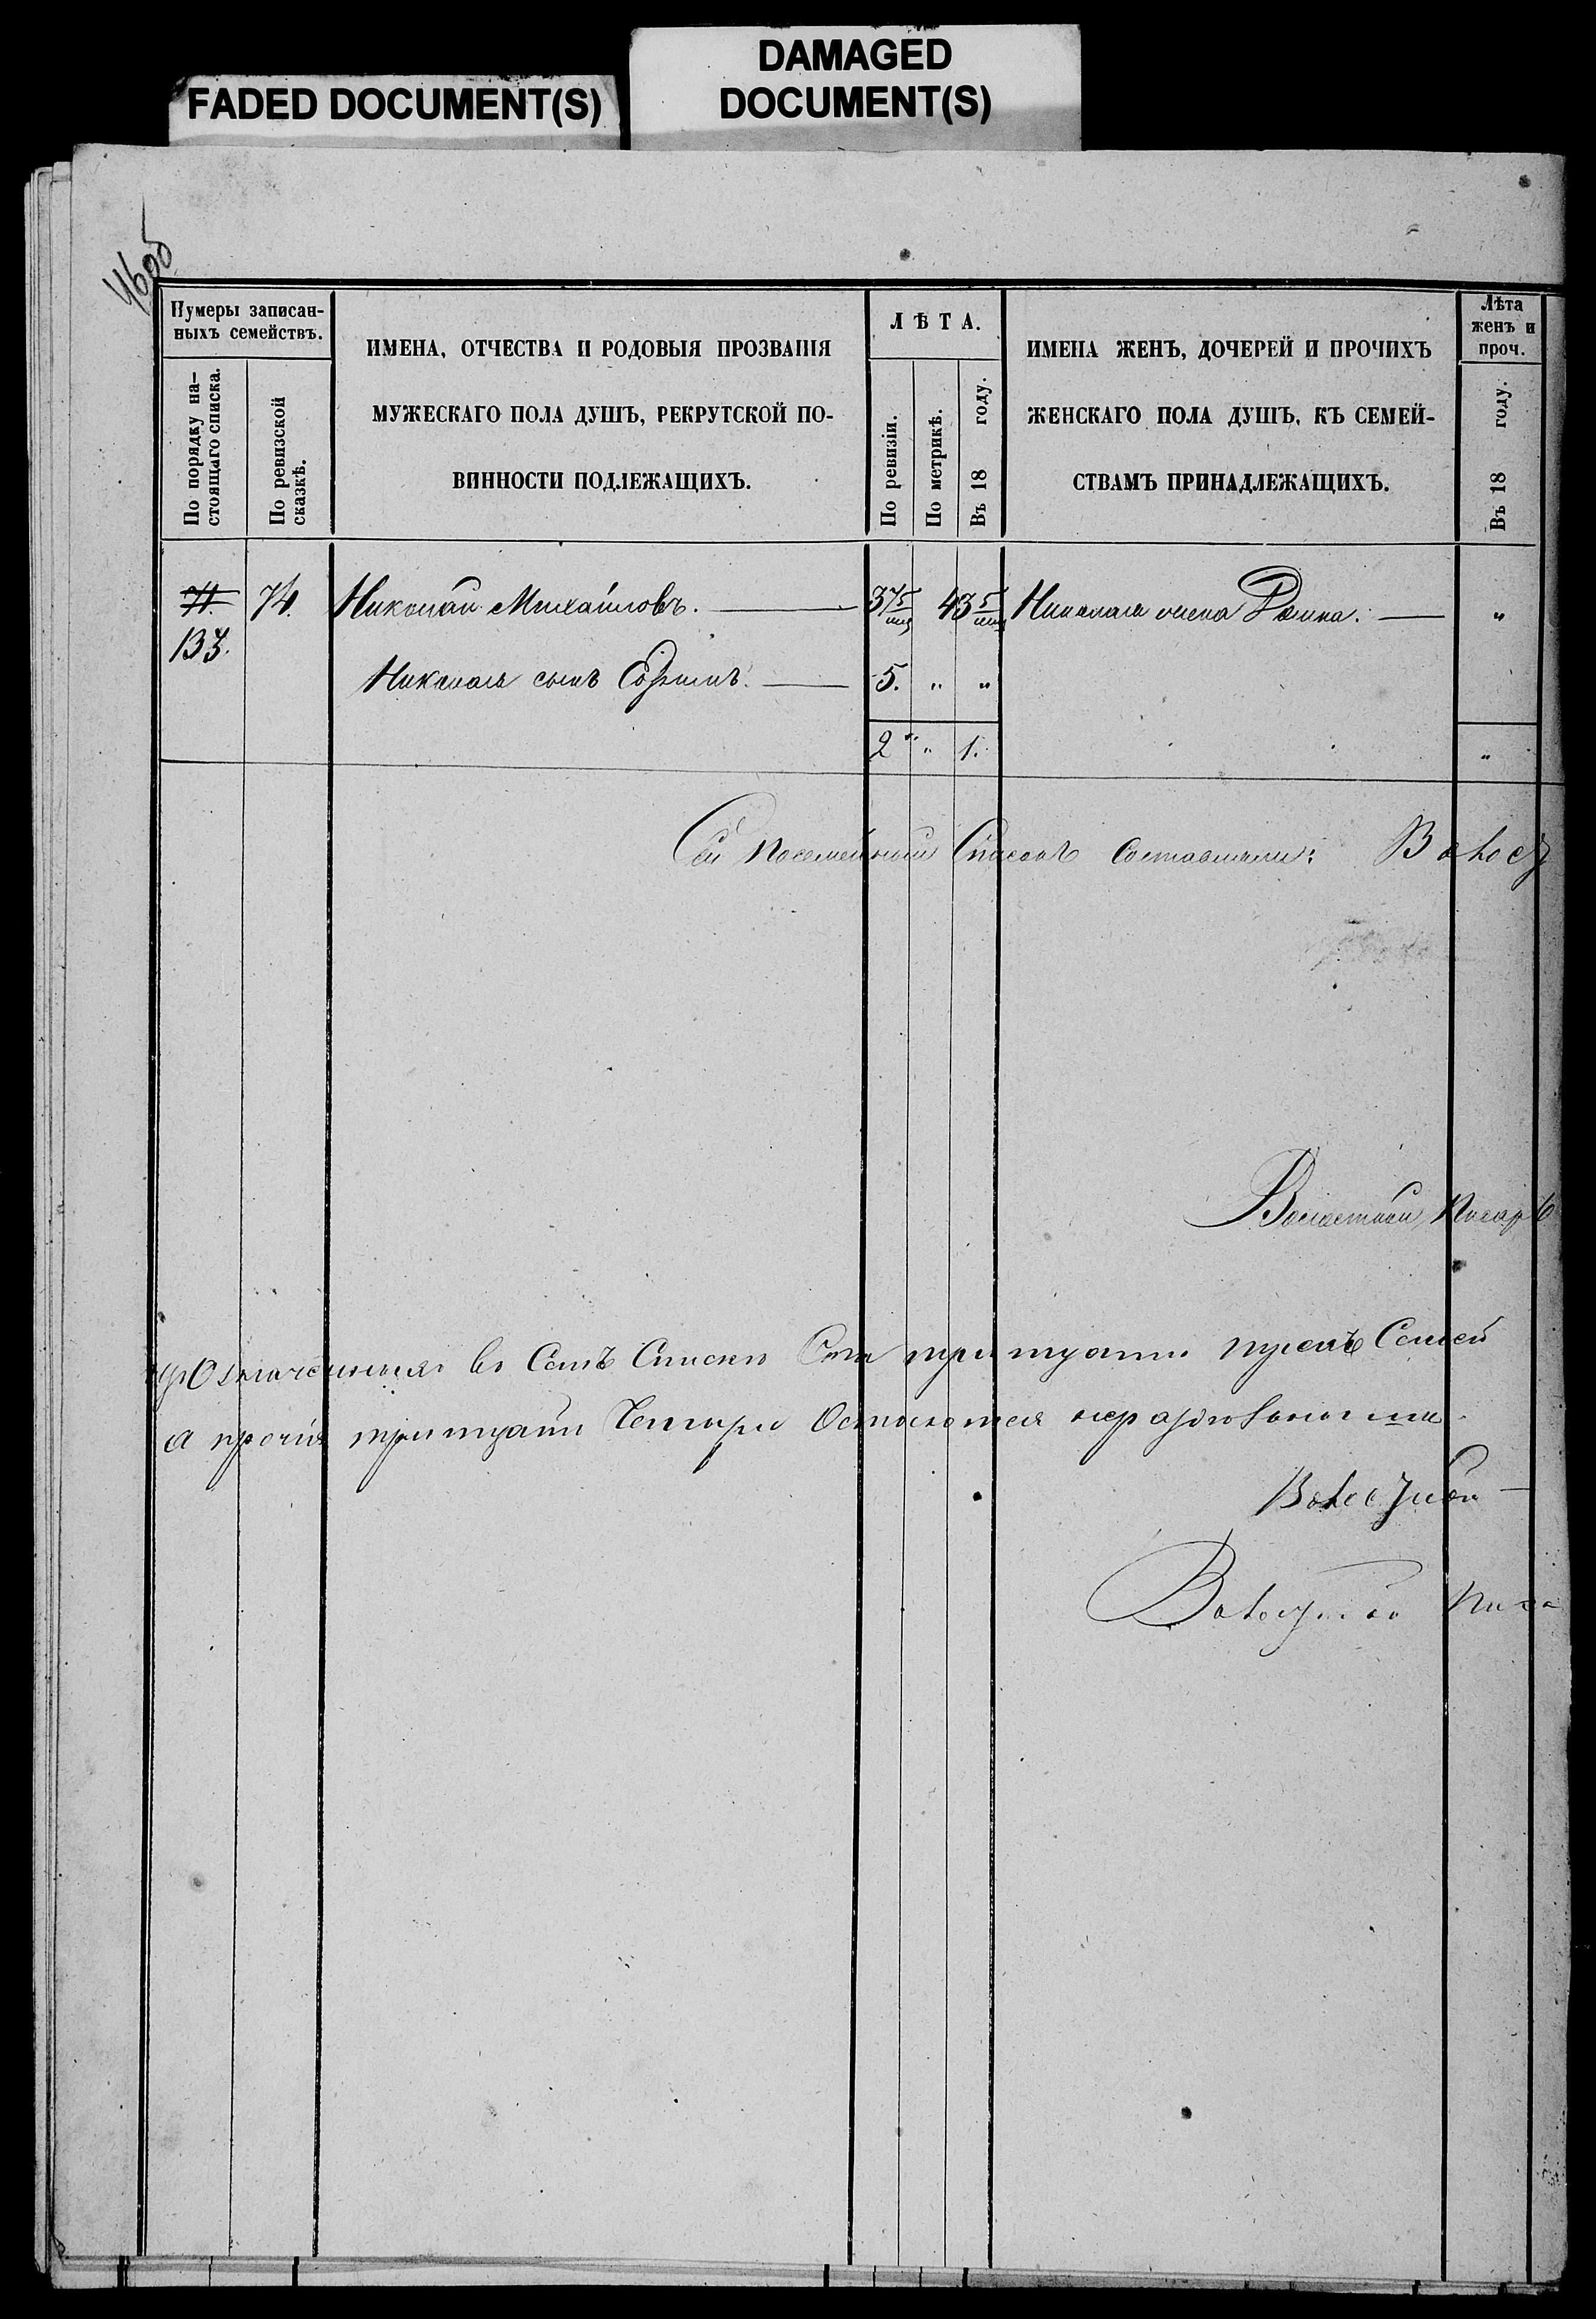 FADED DOCUMENT(S)
DAMAGED
DOCUMENT(S)
46об
Нумеры записан-
ныхъ семействъ.
По порядку на-
стоящаго списка.
По ревизской
сказкѣ.
ИМЕНА, ОТЧЕСТВА И РОДОВЫЯ ПРОЗВАНІЯ
МУЖЕСКАГО ПОЛА ДУШЪ, РЕКРУТСКОЙ ПО-
ВИННОСТИ ПОДЛЕЖАЩИХЪ.
ЛѢТА.
По ревизіи.
По метрикѣ.
Въ 18 году.
ИМЕНА ЖЕНЪ, ДОЧЕРЕЙ И ПРОЧИХЪ
ЖЕНСКАГО ПОЛА ДУШЪ, КЪ СЕМЕЙ-
СТВАМЪ ПРИНАДЛЕЖАЩИХЪ.
Лѣта
женъ и
проч.
Въ 18 году.
71. 74. Николай Михайловъ. — 37 5 43 5 Николая жена — "
133.
Николая сынъ — 5. " "
2 " " 1. "
Сей Посемейный Списокъ Составляли: Волост
Волостной Писарь
Означенныя въ Семъ Списке Сто тритцать Семей
а прочія тритцать Четыре Остаются
Волостной
Волостной Писа